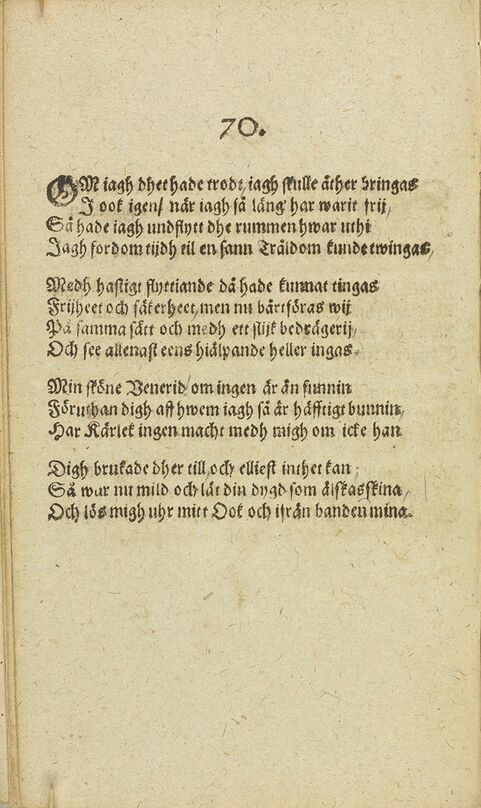 70.
OM iagh dhet hade trodt, iagh skulle äther bringas
I ook igen/ när iagh så läng har warit frij,
Så hade iagh undflytt dhe rummen hwar uthi
Iagh fordom tijdh til en sann Träldom kunde twingas,
Medh hastigt flyttiande då hade kunnat tingas
Frijheet och säkerheet, men nu bårtföras wij
På samma sätt och medh ett slijk bedrägerij,
Och see allenast eens hiälpande heller ingas.
Min sköne Venerid/ om ingen är än funnin
Föruthan digh aff hwem iagh så är häfftigt bunnin,
Har Kärlek ingen macht medh migh om icke han
Digh brukade dher till, och elliest inthet kan;
Så war nu mild och lät din dygd som älskas skina,
Och lös migh uhr mitt Ook och ifrån banden mina.